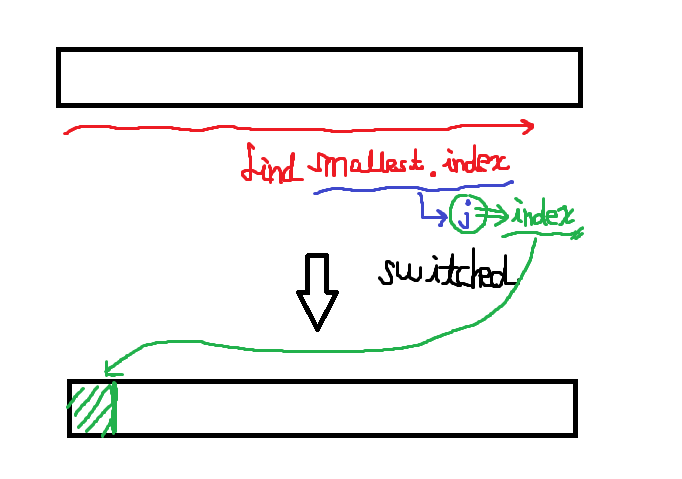 find smallest.index
j index
switched